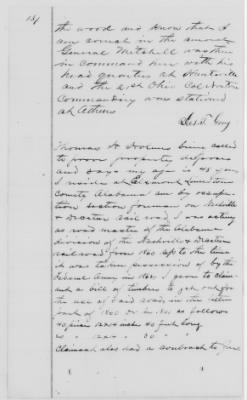 the wood and know that I
am correct in the amount
General Mitchell was then
in command here with his
head quarters at Huntsville
and the 21st Ohio Col Norton
Commanding was stationed
at Athens
Thomas H being called
to prove property deposes
and says my age is 43 years
I reside in Limestone
County Alabama am by occupa-
tion section foreman on Nashville
& Decatur rail road, I was acting
as road master of the Alabama
division of the Nashville & Decatur
rail road from 1860 up to the time
it was taken possession of by the
Federal Army in 1862. I gave to claim-
ant a bill of timbers to get out for
the use of said road, in the latter
part of 1860 or in 1861 as follows
40 pieces feet long
30
Claimant also had a contract to